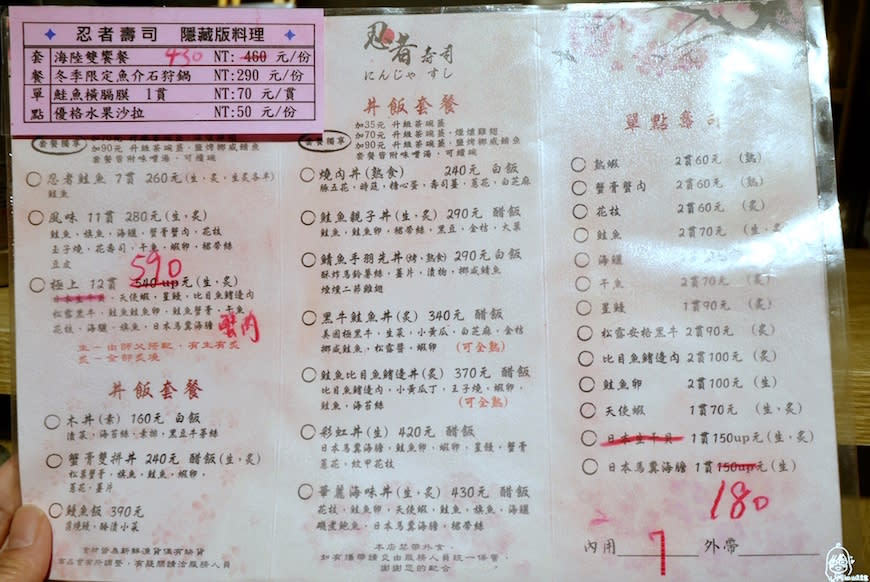 忍者壽司 隱藏版料理
套 海陸雙饗餐 430 NT: 460 元/份
餐 冬季限定魚介石狩鍋 NT:290 元/份
單 鮭魚橫膈膜 1貫 NT:70 元/貫
點 優格水果沙拉 NT:50 元/份
套餐獨享
加90元 升級茶碗蒸、鹽烤挪威鯖魚
套餐皆附味噌湯，可續碗
忍者鮭魚 7貫 260元(生,炙,生炙各半)
鮭魚
風味 11貫 280元(生,炙)
鮭魚、旗魚、海鱺、蟹膏蟹肉、花枝
玉子燒、花壽司、干魚、蝦卵、裙帶絲
豆皮
590
極上 12貫 540up元(生,炙)
日本生干貝、天使蝦、星鰻、比目魚鰭邊肉
松露黑牛、鮭魚鮭魚卵、鮭魚、蟹膏、干魚
花枝、海鱺、旗魚、日本馬糞海膽 蟹肉
生-由師父搭配，有生有炙
炙-全部炙燒
丼飯套餐
木丼(素) 160元 白飯
漬菜、海苔絲、素排、黑豆牛蒡絲
蟹膏雙拼丼 240元 醋飯(生,炙)
松葉蟹膏、旗魚、鮭魚、蝦卵、
蔥花、薑片
鰻魚飯 390元
蒲燒鰻、時漬小菜
食材皆為新鮮漁貨偶有缺貨
本店皆會所調整，有疑問請洽服務人員
忍者壽司
にんじゃ すし
丼飯套餐
套餐獨享
加35元 升級茶碗蒸
加70元 升級茶碗蒸、煙燻雞翅
加90元 升級茶碗蒸、鹽烤挪威鯖魚
套餐皆附味噌湯，可續碗
燒肉丼(熟食) 240元 白飯
豚五花、時蔬、糖心蛋、壽司薑、蔥花、白芝麻
鮭魚親子丼(生,炙) 290元 醋飯
鮭魚、鮭魚卵、裙帶絲、黑豆、金桔、大葉
鯖魚手羽先丼(烤,熟食) 290元 白飯
酥炸馬鈴薯絲、薑片、漬物、挪威鯖魚
煙燻二節雞翅
黑牛鮭魚丼(炙) 340元 醋飯
美國極黑牛、生菜、小黃瓜、白芝麻、金桔
挪威鮭魚、松露醬、蝦卵 (可全熟)
鮭魚比目魚鰭邊丼(炙) 370元 醋飯
比目魚鰭邊肉、小黃瓜丁、玉子燒、蝦卵、
鮭魚、海苔絲 (可全熟)
彩虹丼(生) 420元 醋飯
日本馬糞海膽、鮭魚、鮭魚卵、蝦卵、星鰻、蟹膏
蔥花、紋甲花枝
華麗海味丼(生,炙) 430元 醋飯
花枝、天使蝦、鮭魚卵、鮭魚、旗魚、海鱺
磯煮鮑魚、日本馬糞海膽、裙帶絲
本店禁帶外食，
如有攜帶請交由服務人員統一保管，
謝謝您的配合
單點壽司
熟蝦 2貫60元 (熟)
蟹膏蟹肉 2貫60元 (熟)
花枝 2貫60元 (生,炙)
鮭魚 2貫70元 (生,炙)
海鱺
干魚 2貫70元 (生,炙)
星鰻 1貫90元 (炙)
松露安格黑牛 2貫90元 (炙)
比目魚鰭邊肉 2貫100元 (炙)
鮭魚卵 2貫100元 (生)
天使蝦 1貫70元 (生,炙)
日本生干貝 1貫150up元(生,炙)
日本馬糞海膽 1貫150up元(生)
180
內用 7 外帶